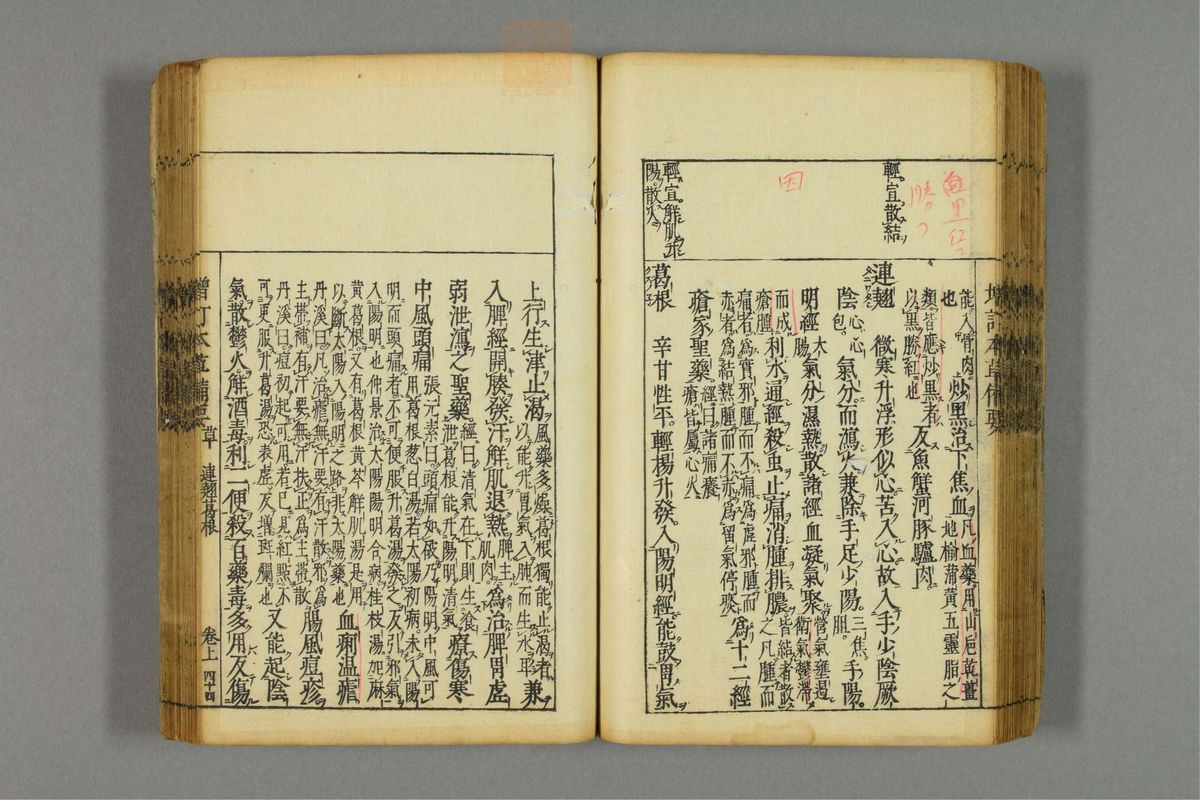 能入骨肉也炒黑治下焦血凡血藥用山巵乾薑地榆蒲黃五靈脂之
類皆應炒黑者以黑勝紅也反魚蟹河豚驢肉
輕宣散結
連翹微寒升浮形似心苦入心故入手少陰厥
陰心心包氣分而瀉火兼除手足少陽三焦膽手陽
明經大腸氣分濕熱散諸經血凝氣聚營氣壅遏衛氣鬱滯
而成瘡腫利水通經殺虫止痛消腫排膿皆結者散之凡腫而
痛者爲實邪腫而不痛爲虛邪腫而赤者爲結熱腫而不赤爲留氣停痰爲十二經
瘡家聖藥經曰諸痛癢瘡皆屬心火
輕宣解肌升陽散火
葛根辛甘性平輕揚升發入陽明經能鼓胃氣
上行生津止渴風藥多燥葛根獨能止渴者以能升胃氣入肺而生水耳兼
入脾經開腠發汗解肌退熱脾主肌肉爲治脾胃虛
弱泄瀉之聖藥經曰清氣在下則生飧泄葛根能升陽明清氣療傷寒
中風頭痛張元素曰頭痛如破乃陽明中風可用葛根葱白湯若太陽初病未入陽
明而頭痛者不可便服升葛湯發之反引邪氣入陽明也仲景治太陽陽明合病桂枝湯加麻
黃葛根又有葛根黃芩解肌湯是用以斷太陽入陽明之路非太陽藥也血痢温瘧
丹溪曰凡治瘧無汗要有汗散邪爲主帶補有汗要無汗扶正爲主帶散腸風痘疹
丹溪曰痘初起可用若已見紅點不可更服升葛湯恐表虛反增斑爛也又能起陰
氣散鬱火解酒毒利二便殺百藥毒多用反傷
增訂本草備要
草
連翹葛根
卷上
四十四
因